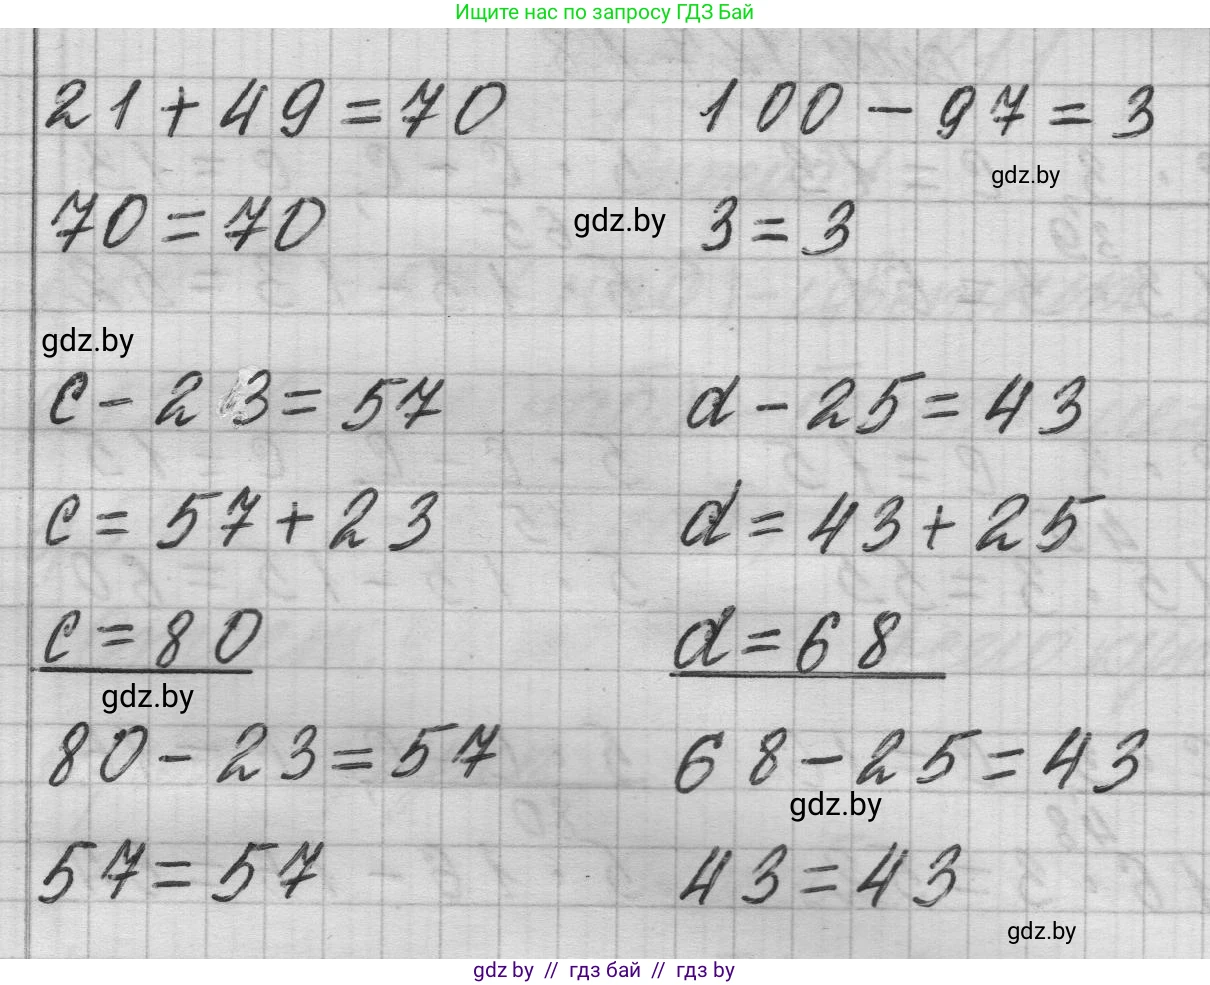 Ищите нас по запросу ГДЗ Бай
21 + 49 = 70 100 - 97 = 3
gdz.by
70 = 70 gdz.by 3 = 3
gdz.by
c - 23 = 57 d - 25 = 43
c = 57 + 23 d = 43 + 25
c = 80 d = 68
gdz.by
80 - 23 = 57 68 - 25 = 43
gdz.by
57 = 57 43 = 43
gdz.by
gdz by // гдз бай // гдз by